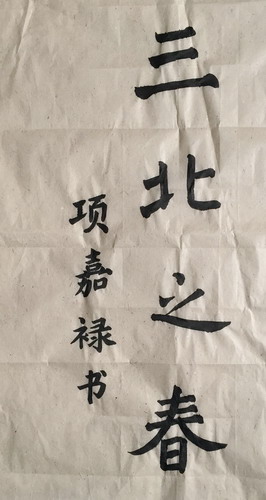 三北之春
项嘉禄书